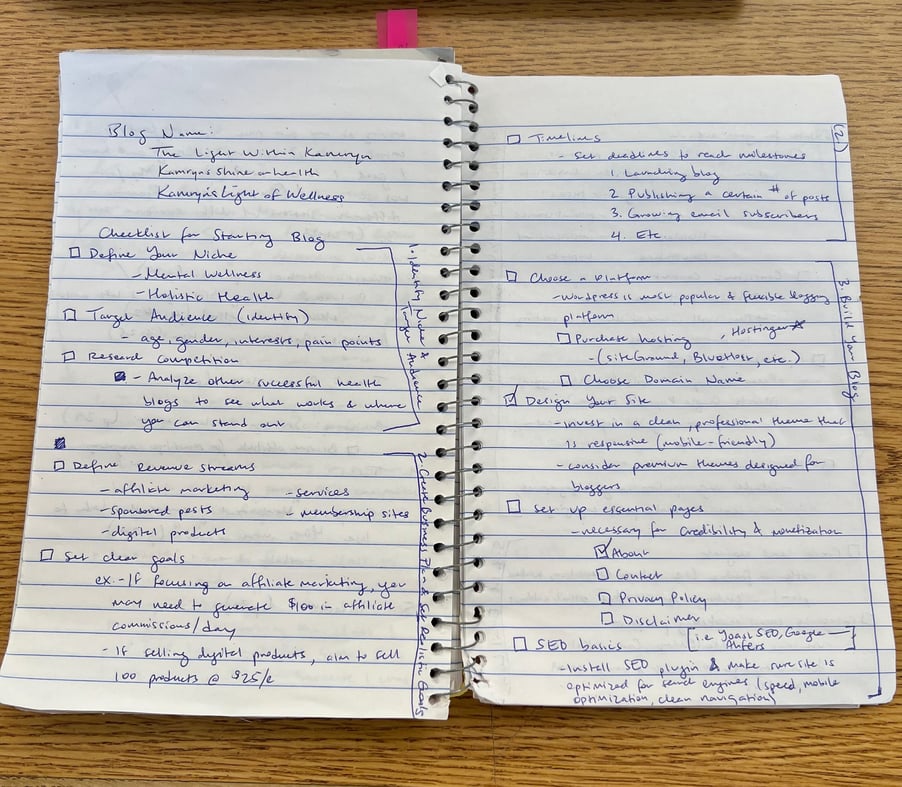 Blog Name:
The Light Within Kamryn
Kamryn's Shine on health
Kamryn's Light of Wellness
Checklist for Starting Blog
Define Your Niche
- Mental Wellness
- Holistic Health
Target Audience (identity)
- age, gender, interests, pain points
Research Competition
- Analyze other successful health
blogs to see what works & where
you can stand out
1. Identify Niche &
Target Audience
Define Revenue streams
- affiliate marketing - services
- sponsored posts - membership sites
- digital products
Set clear goals
ex. - If focusing on affiliate marketing, you
may need to generate $100 in affiliate
commissions/day
- If selling digital products, aim to sell
100 products @ $25/e
2. Create Business Plan & Set Realistic Goals
(2)
Timelines
- Set deadlines to reach milestones
1. Launching blog
2 Publishing a certain # of posts
3. Growing email subscribers
4. Etc
Choose a Platform
- Wordpress is most popular & flexible blogging
platform
Purchase hosting , Hostinger
- (siteGround, BlueHost, etc.)
Choose Domain Name
Design Your Site
- invest in a clean, professional theme that
is responsive (mobile-friendly)
- consider premium themes designed for
bloggers
Set up essential pages
- necessary for credibility & monetization
About
Contact
Privacy Policy
Disclaimer
SEO basics [i.e Yoast SEO, Google
Ahrefs]
- Install SEO plugin & make sure site is
optimized for search engines (speed, mobile
optimization, clean navigation)
3. Build Your Blog